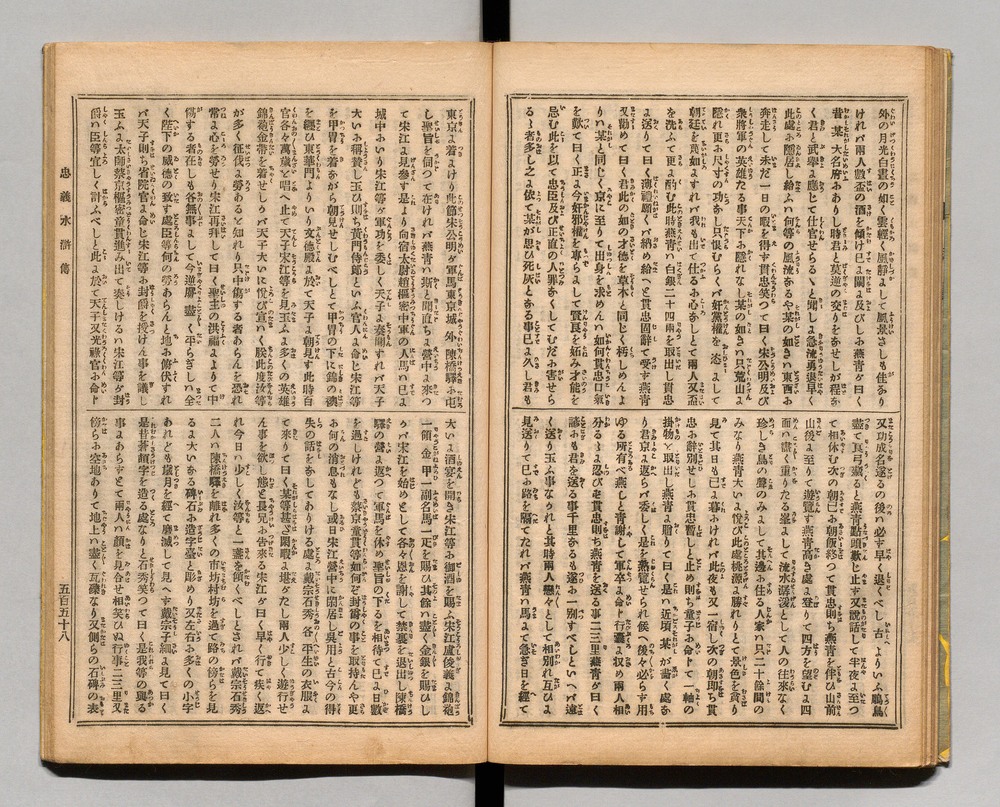 外の月光白晝の如く雲輕く風靜よして風景さしも佳なり
けれバ兩人數盃の酒を傾け已よ闌よ及びしお燕青ヶ曰く
昔某大名府おありし時君と莫逆の交りをなせしが程な
く君ハ武擧よ應じて仕官せらるゝと聞しよ急流勇退早く
此處お隱居し給ふハ何等の風流なるや今某の如きハ東西お
奔走して未だ一日の暇を得ず貫忠笑つて曰く宋公明及び
衆將軍の英雄たる事天下お隱れなし某の如きハ只荒山よ
隱れ更お尺寸の功なし但恨むらくハ奸黨權を恣よして
朝廷を罔よすれバ我も出て仕るお心なしとて兩人又盃
を洗つて更よ酌む此時燕青ハ白銀二十四兩を取出し貫忠
よ送つて曰く薄禮願くハ納め給へと貫忠固辭して受ず燕青
又勸めて曰く君此の如の才德を草木と同じく朽しめんよ
りハ某と同じく京よ至りて出身を求めんハ如何貫忠口氣
を歎て曰く正よ今奸邪權を專らよして賢良を妬み才能を
忌む此を以て忠臣及び正直の人罪なくしてむだお害せら
るゝ者多し之よ依て某が思ひ死灰となる事已よ久し君も
又功成名遂るの後ハ必ず早く退くべし古へよりいふ鵰鳥
盡て良弓藏ると燕青點頭歎じ止ず又說話して半夜よ至つ
て相休む次の朝已お朝飯終つて貫忠則ち燕青を伴ひ山前
山後よ至りて遊覽す燕青高き處よ登りて四方を望むよ四
面ハ盡く重りたる巒よして流水潺湲として人の往來なく
珍しき鳥の聲のみよして其邊お住る人家ハ只二十餘間の
みなり燕青大いよ悅び此處桃源よ勝れりとて景色を貪り
見て其日も已よ暮ふけれバ此夜も又一宿し次の朝即て貫
忠お辭別せしお貫忠暫しと止め則ち童子お命じて一軸の
掛物と取出し燕青よ贈りて曰く是ハ近頃某が畫く處な
り君京よ返らバ委しく是を熟覽せられ候へ後々必らず用
ゆる所有べし燕青謝して軍卒よ命じ行囊よ收め兩人相
分るゝよ忍びず貫忠則ち燕青を送る事二三里燕青ヶ曰く
諺よも君を送る事千里なるも遂お一別すべしといへバ遠
く送り玉ふ事なかれと其時兩人戀々として相別れ互ひよ
見送りて已お路を隔てたれバ燕青ハ馬よて急ぎ日を經て
東京よ着よけり此節宋公明ヶ軍馬東京城外陳橋驛お屯
し聖旨を伺つて在けれバ燕青ハ斯と聞直ちよ營中よ來つ
て宋江よ見參す是より向宿太尉趙樞密中軍の人馬ハ已よ
城中おいり宋江等ヶ軍功を委しく天子よ奏聞すれバ天子
大いお稱贊し玉ひ則ち黃門侍郎といふ官人よ命じ宋江等
を甲冑を着なから朝見せしむべしとて甲冑の下に錦の襖
を纒ひ東華門よりいり文德殿よ於て天子よ朝見す此時百
官各々萬歲と唱へ止て天子宋江等を見玉ふよ多くの英雄
錦袍金帶を着せしゥバ天子大いに悅び宣ハく朕此度卿等
が多く征伐よ勞あると知れり只中傷する者あらんを恐れ
常よ心を勞せり宋江再拜して曰く聖主の洪福よよりて中
傷する者在しも各無事よして今邊塞盡く平らぎしハ全
く陛下の威德の致す處臣等何の勞あらんと地お俯伏すれ
バ天子則ち省院官よ命じ宋江等お封爵を授けん事を議し
玉ふよ太師蔡京樞密童貫進み出て奏しけるハ宋江等ヶ封
爵ハ臣等宜しく計ふべしと此よ於て天子又光祿官お命じ
大いよ酒宴を開き宋江等お御酒を賜ふ宋江盧俊義よ錦袍
一領金甲一副名馬一疋を賜ひ其餘ハ盡く金銀を賜ひし
ゥバ宋江を始めとして各々恩を謝して禁裏を退出し陳橋
驛の營よ返つて軍馬を休め聖旨の下ると相待て已よ日數
を過しけれども蔡京童貫等如何ぞ封爵の事を取持んや更
お何の消息もなし或日宋江營中に閑居し吳用と古今の得
失の話をなしてありける處よ戴宗石秀各平生の衣服よ
て來りて曰く某等甚ざ閑暇よ堪ゲたし兩人少しく遊行せ
ん事を欲し態と長兄お告來る宋江ヶ曰早く行て疾く返
れ今日ハ少しく汝等と一盞を傾くべしとされバ戴宗石秀
二人ハ陳橋驛を離れ多くの市坊村坊を過て路の傍らを見
るよ大いなる碑石お造字臺と彫めり又左右お多くの小字
あれども歲月を經て磨滅して見へず戴宗子細よ見て曰く
是昔蒼頡字を造る處なりと石秀笑つて曰く是我等の與る
事よあらずとて兩人ハ顏を見合せ相笑ひぬ行事二三里又
傍らお空地ありて地上ハ盡く瓦礫なり又側らの石碑の表
忠義水滸傳
五百五十八